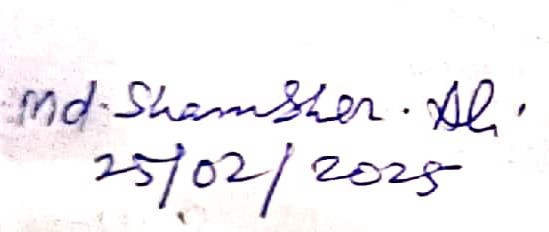 Md. Shamsher. Ali.
25/02/2025